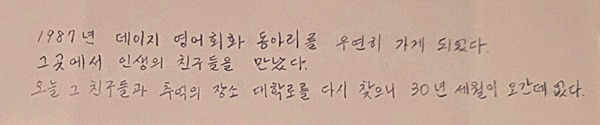 1987년 데이지 영어회화 동아리를 우연히 가게 되었다.
그곳에서 인생의 친구들을 만났다.
오늘 그 친구들과 추억의 장소 대학로를 다시 찾으니 30년 세월이 오간데 없다.